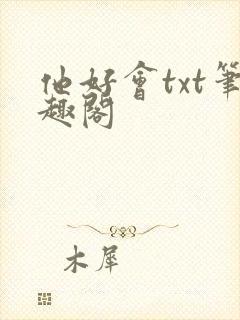 他好會txt筆
趣閣
木犀